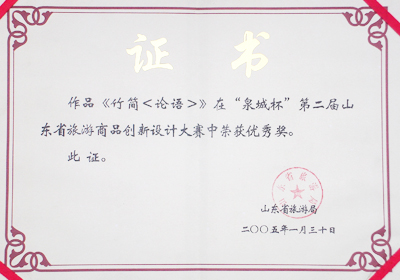 证书
作品《竹简<论语>》在“泉城杯”第二届山
东省旅游商品创新设计大赛中荣获优秀奖。
此证。
山东省旅游局
二〇〇五年一月三十日